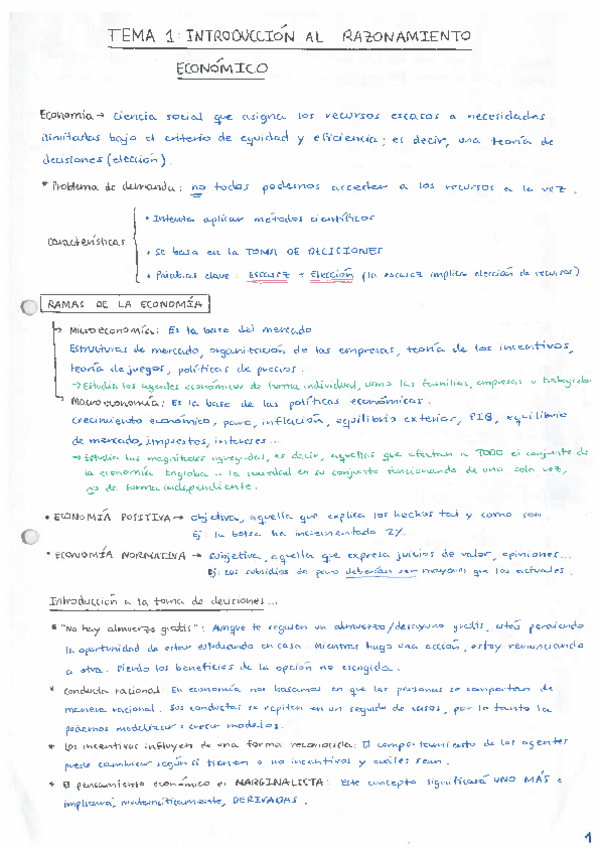 TEMA 1: INTRODUCCIÓN AL RAZONAMIENTO
ECONÓMICO
Economía → ciencia social que asigna los recursos escasos a necesidades
ilimitadas bajo el criterio de equidad y eficiencia; es decir, una teoría de
decisiones (elección).
* Problema de demanda: no todos podemos acceder a los recursos a la vez.
• Intenta aplicar métodos científicos
características
• Se basa en la TOMA DE DECISIONES
• Palabras clave: Escasez + Elección (la escasez implica elección de recursos)
RAMAS DE LA ECONOMÍA
Microeconomía: Es la base del mercado
Estructuras de mercado, organización de las empresas, teoría de los incentivos,
teoría de juegos, políticas de precios...
→ Estudia los agentes económicos de forma individual, como las familias, empresas o trabajador
Macroeconomía: Es la base de las políticas económicas.
crecimiento económico, paro, inflación, equilibrio exterior, PIB, equilibrio
de mercado, impuestos, intereses...
→ Estudia las magnitudes agregadas, es decir, aquellas que afectan a TODO el conjunto de
la economía. Engloba a la sociedad en su conjunto funcionando de una sola vez,
no de forma independiente.
• ECONOMÍA POSITIVA → objetiva, aquella que explica los hechos tal y como son.
Ej: la bolsa ha incrementado 2%.
* ECONOMÍA NORMATIVA → subjetiva, aquella que expresa juicios de valor, opiniones...
Ej: Los subsidios de paro deberían ser mayores que los actuales.
Introducción a la toma de decisiones...
* "No hay almuerzo gratis": Aunque te regalen un almuerzo/desayuno gratis, estás perdiendo
la oportunidad de estar estudiando en casa. Mientras hago una acción, estoy renunciando
a otra. Pierdo los beneficios de la opción no escogida.
* conducta racional: En economía nos basamos en que las personas se comportan de
manera racional. Sus conductas se repiten en un segundo de casos, por lo tanto la
podemos modelizar: crear modelos.
* Los incentivos influyen de una forma reconocida: El comportamiento de los agentes
puede cambiar según si tienen o no incentivos y cuáles sean.
* El pensamiento económico es MARGINALISTA: Este concepto significará UNO MÁS e
implicará, matemáticamente, DERIVADAS.
1